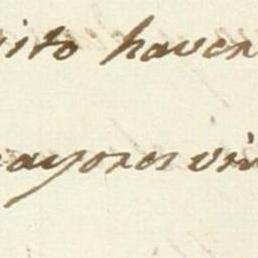 ito haver
ayores vi